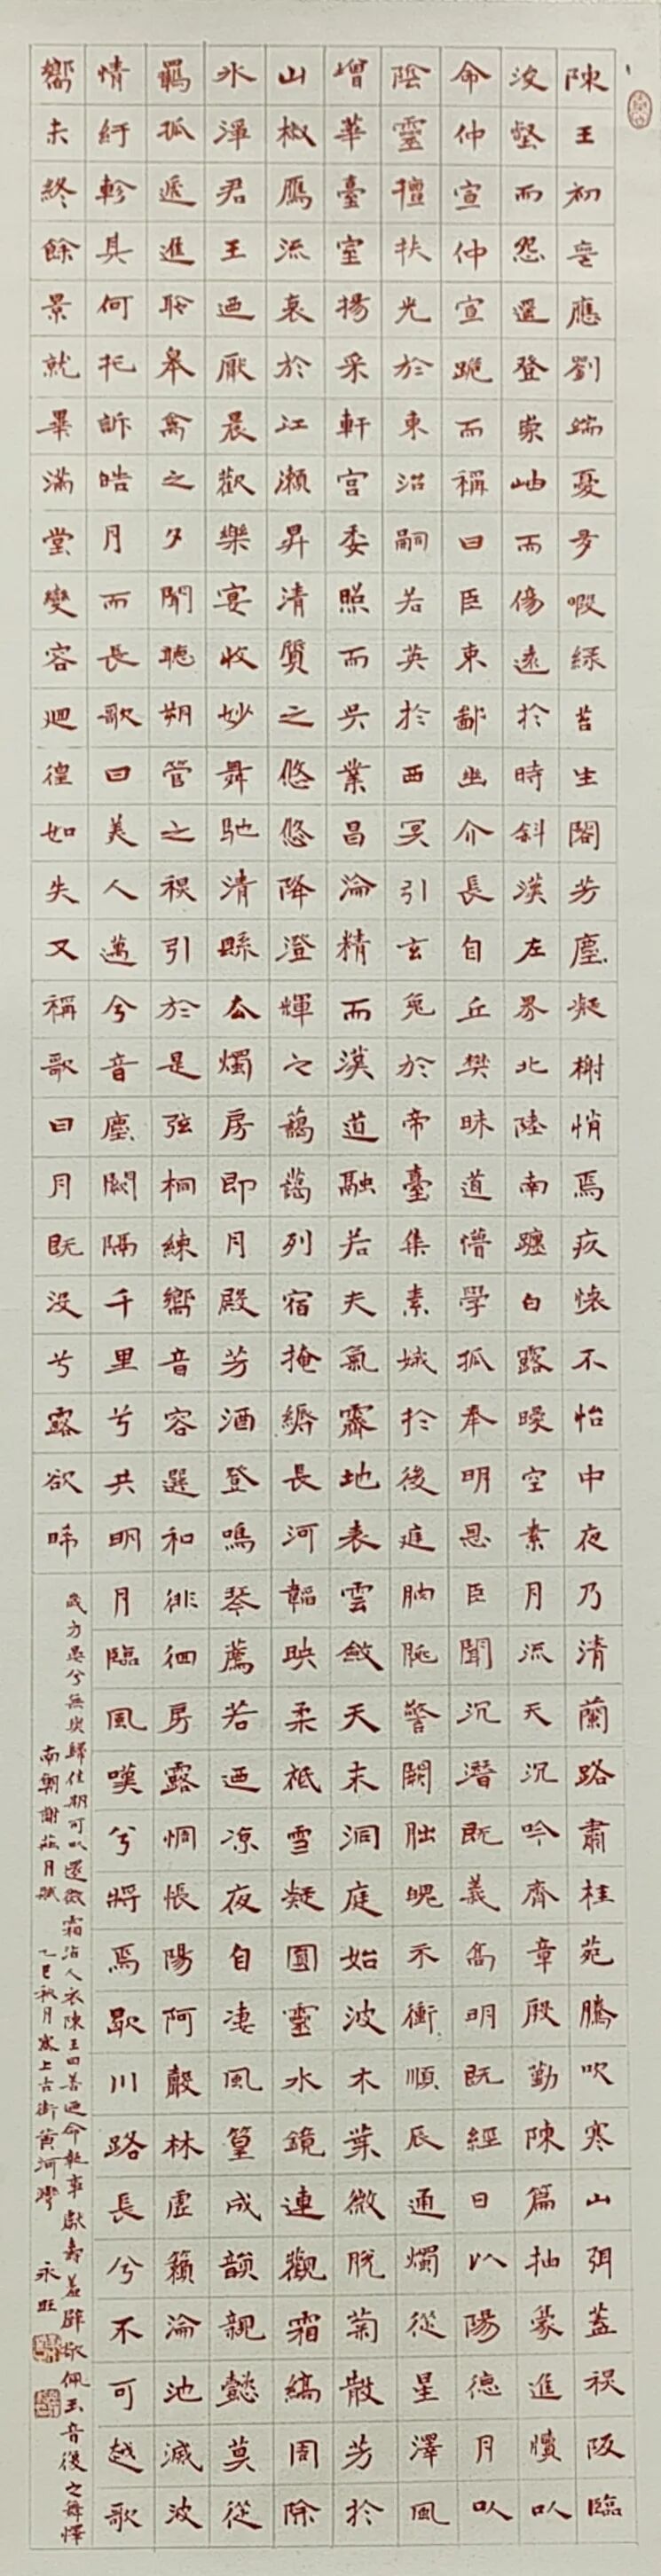 陳王初喪應劉端憂多暇綠苔生閣芳塵凝榭悄焉疚懷不怡中夜乃清蘭路肅桂苑騰吹寒山弭蓋秋阪臨
浚壑而怨遥登崇岫而傷遠於時斜漢左界北陸南躔白露曖空素月流天沉吟齊章殷勤陳篇抽豪進牘以
命仲宣仲宣跪而稱曰臣東鄙幽介長自丘樊昧道懵學孤奉明恩臣聞沉潛既義高明既經日以陽德月以
陰靈擅扶光於東沼嗣若英於西冥引玄兔於帝臺集素娥於後庭朒脁警闕朏魄示衝順辰通燭從星澤風
增華臺室揚采軒宫委照而吳業昌淪精而漢道融若夫氣霽地表雲斂天末洞庭始波木葉微脫菊散芳於
山椒鴈流哀於江瀨昇清質之悠悠降澄輝之藹藹列宿掩縟長河韜映柔祇雪凝圓靈水鏡連觀霜縞周除
冰淨君王迺厭晨歡樂宴收妙舞馳清縣去燭房即月殿芳酒登鳴琴薦若迺凉夜自凄風篁成韻親懿莫從
羈孤遞進聆皋禽之夕聞聽朔管之秋引於是弦桐練響音容選和徘徊房露惆悵陽阿聲林虛籟淪池滅波
情紆軫其何托訴皓月而長歌曰美人邁兮音塵闕隔千里兮共明月臨風嘆兮將焉歇川路長兮不可越歌
響未終餘景就畢滿堂變容迴徨如失又稱歌曰月既没兮露欲晞
歲方晏兮無與歸佳期可以還微霜沾人衣陳王曰善迺命執事獻壽羞璧敬佩玉音復之無懌
南朝謝莊月賦 乙巳秋月 塞上古街黄河灣 永旺